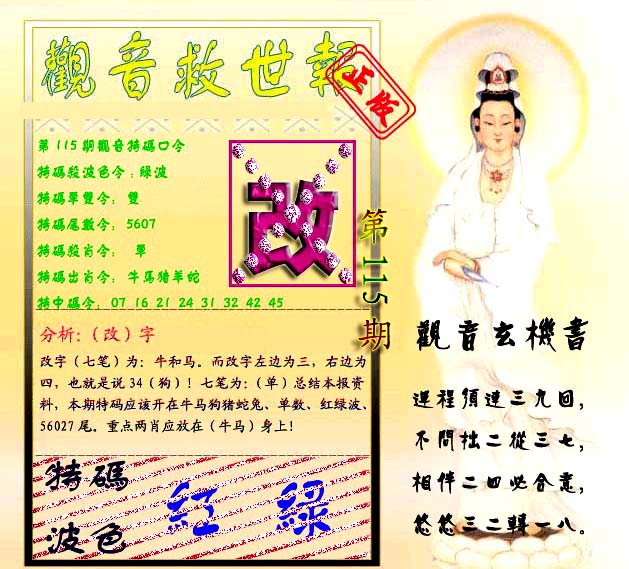 觀音救世報
正版
第115期觀音特碼口令
特碼殺波色令：綠波
特碼單雙令： 雙
特碼尾數令： 5607
特碼殺肖令： 單
特碼出肖令： 牛馬猪羊蛇
特中碼令： 07 16 21 24 31 32 42 45
改
第115期
分析:（改）字
改字（七笔）为：牛和马。而改字左边为三，右边为
四，也就是说 34（狗）！七笔为：（单）总结本报资
料，本期特码应该开在牛马狗猪蛇兔、单数、红绿波、
56027 尾。重点两肖应放在（牛马）身上！
特碼
波色
紅 綠
觀音玄機書
運程須達三九回，
不問拙二從三七，
相伴二四必合意，
悠悠三二轉一八。